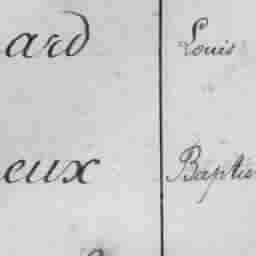 ard Louis
eux Baptis